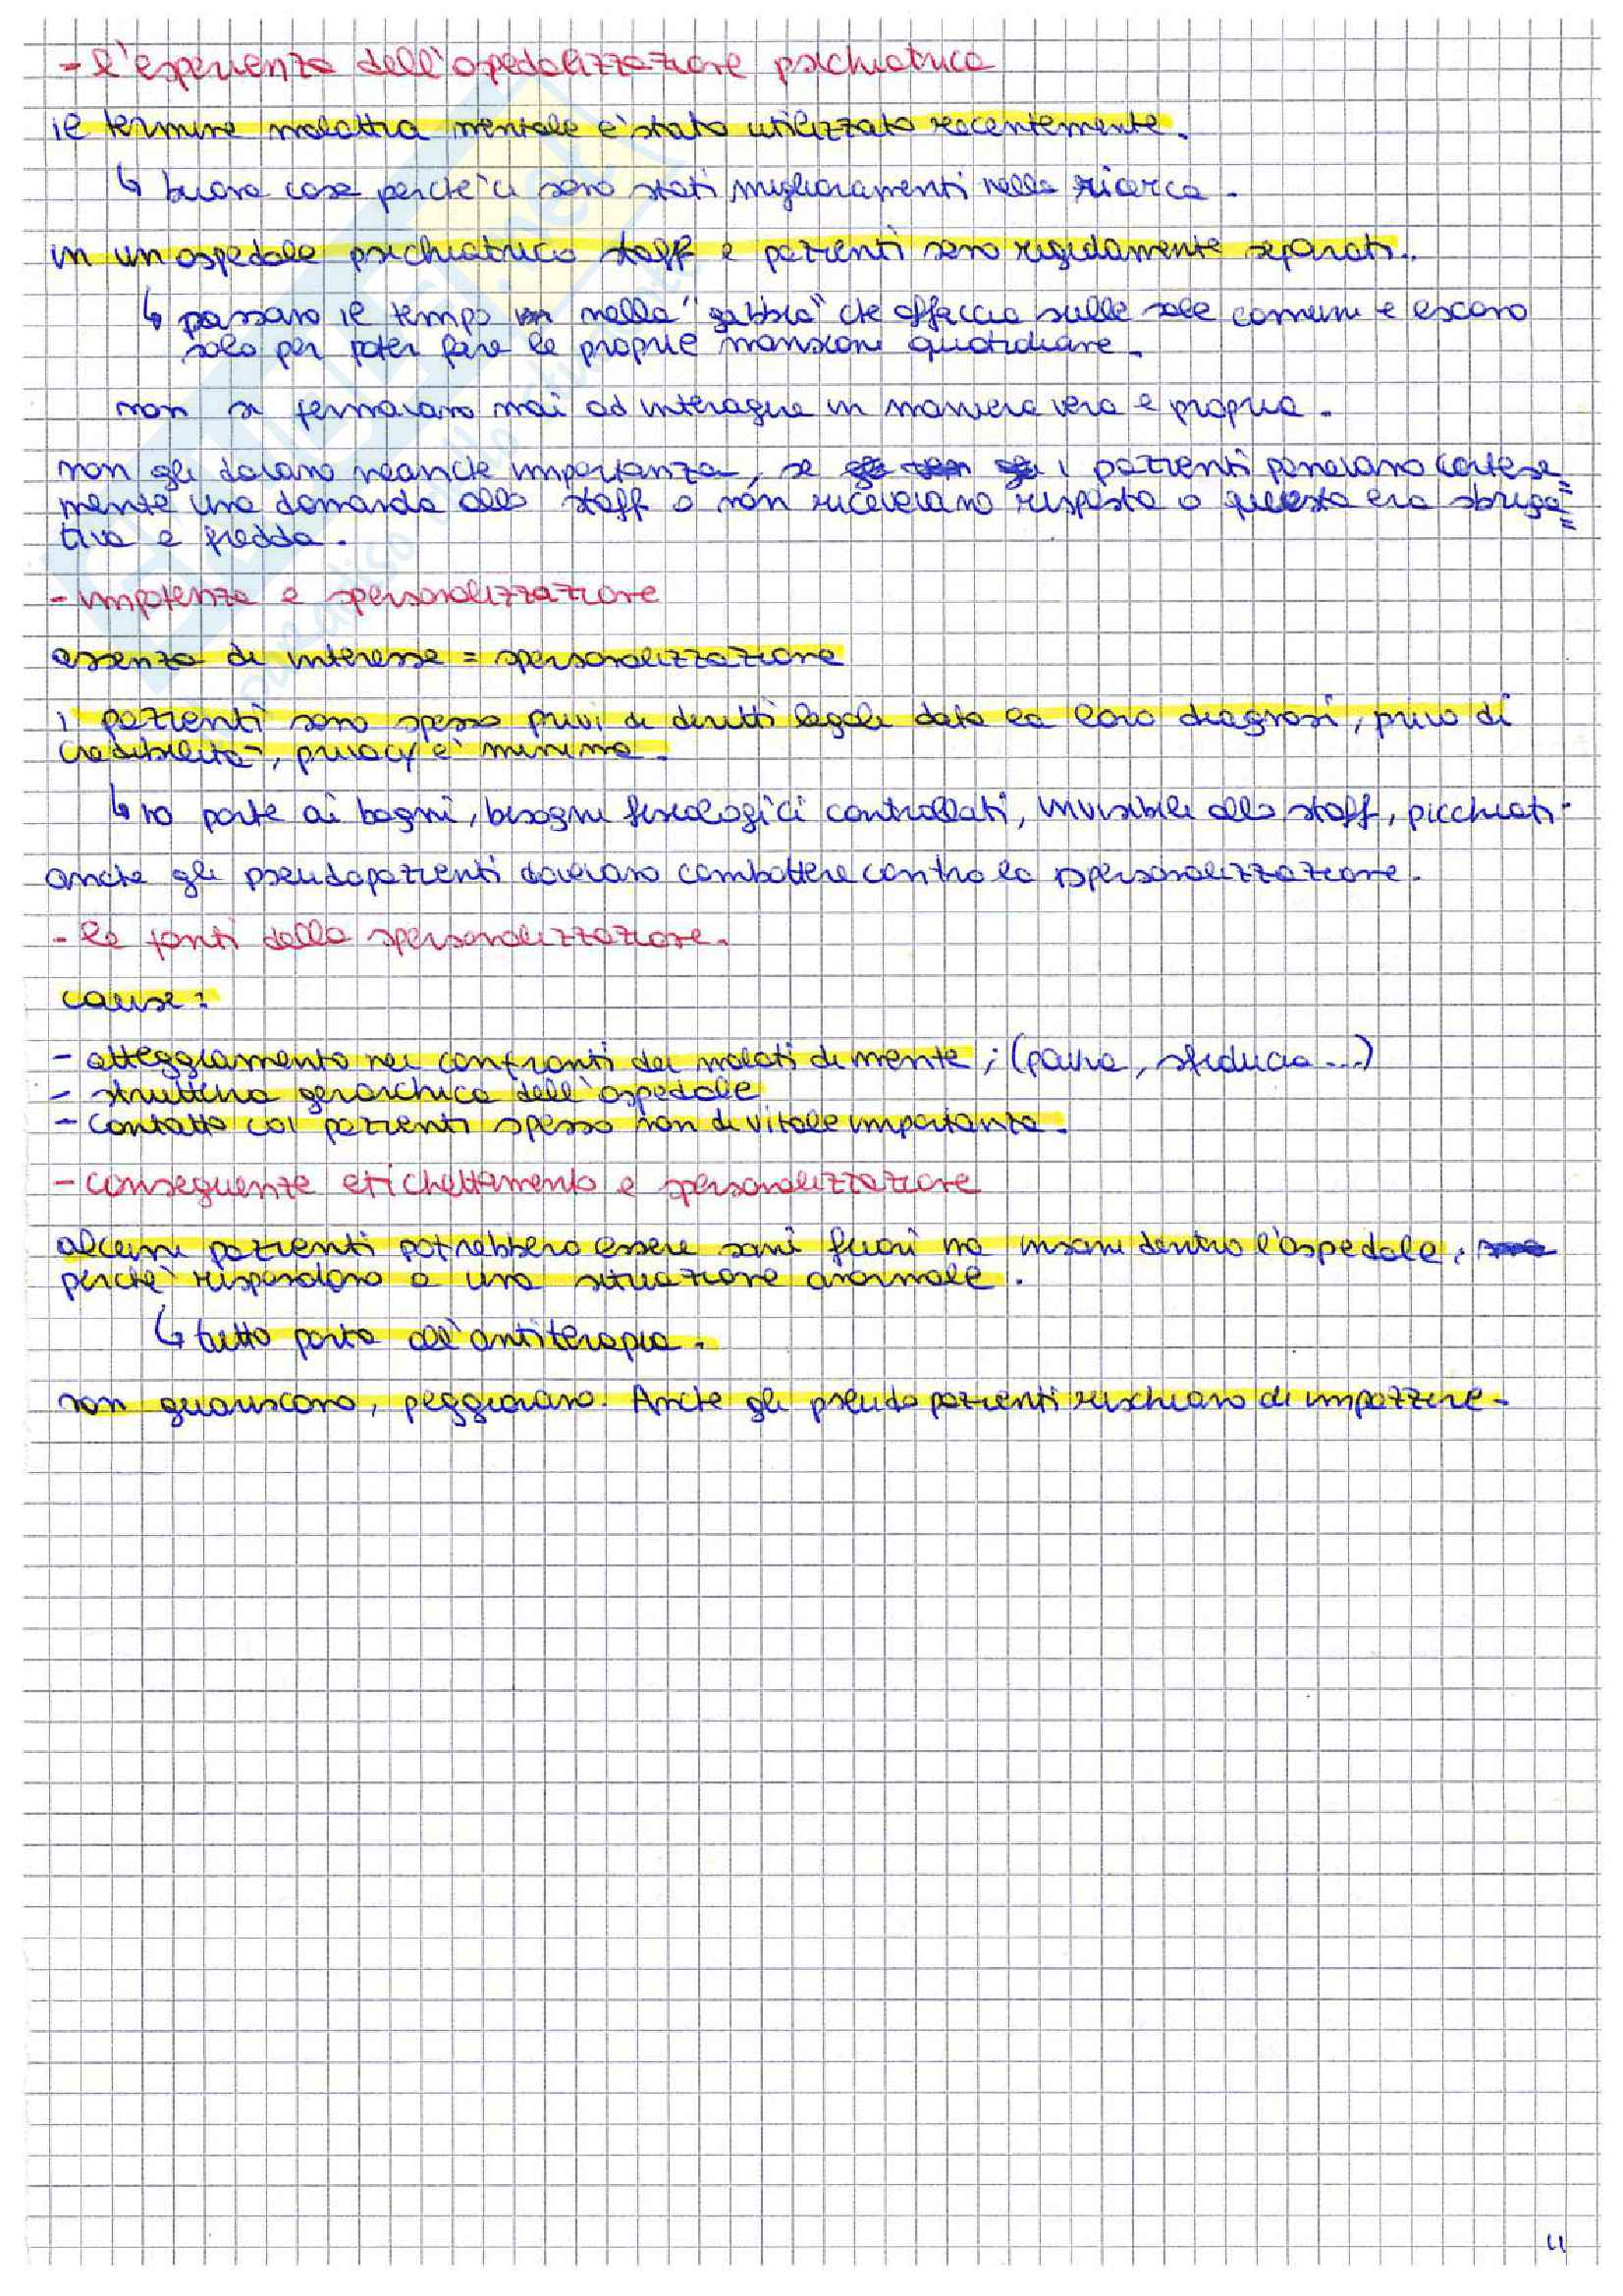 - l'esperienza dell'ospedalizzazione psichiatrica
il termine malattia mentale è stato utilizzato recentemente.
↳ buona cosa perché ci sono stati miglioramenti nella ricerca.
in un ospedale psichiatrico staff e pazienti sono rigidamente separati.
↳ passano il tempo nella "gabbia" che affaccia sulle sale comuni e escono
solo per poter fare le proprie mansioni quotidiane.
non si fermavano mai ad interagire in maniera vera e propria.
non gli davano neanche importanza, se i pazienti ponevano cortese=
mente una domanda allo staff o non ricevevano risposta o questa era sbriga=
tiva e fredda.
- impotenza e spersonalizzazione
assenza di interesse = spersonalizzazione
i pazienti sono spesso privi di diritti legali data la loro diagnosi, privo di
credibilità, privacy è minima.
↳ no porte ai bagni, bisogni fisiologici controllati, invisibili allo staff, picchiati
anche gli pseudopazienti dovevano combattere contro la spersonalizzazione.
- le fonti della spersonalizzazione.
cause:
- atteggiamento nei confronti dei malati di mente; (paura, sfiducia...)
- struttura gerarchica dell'ospedale
- contatto coi pazienti spesso non di vitale importanza.
- conseguenze etichettamento e spersonalizzazione
alcuni pazienti potrebbero essere sani fuori ma insani dentro l'ospedale,
perché rispondono a una situazione anormale.
↳ tutto porta all'antiterapia.
non guariscono, peggiorano. Anche gli pseudopazienti rischiano di impazzire.